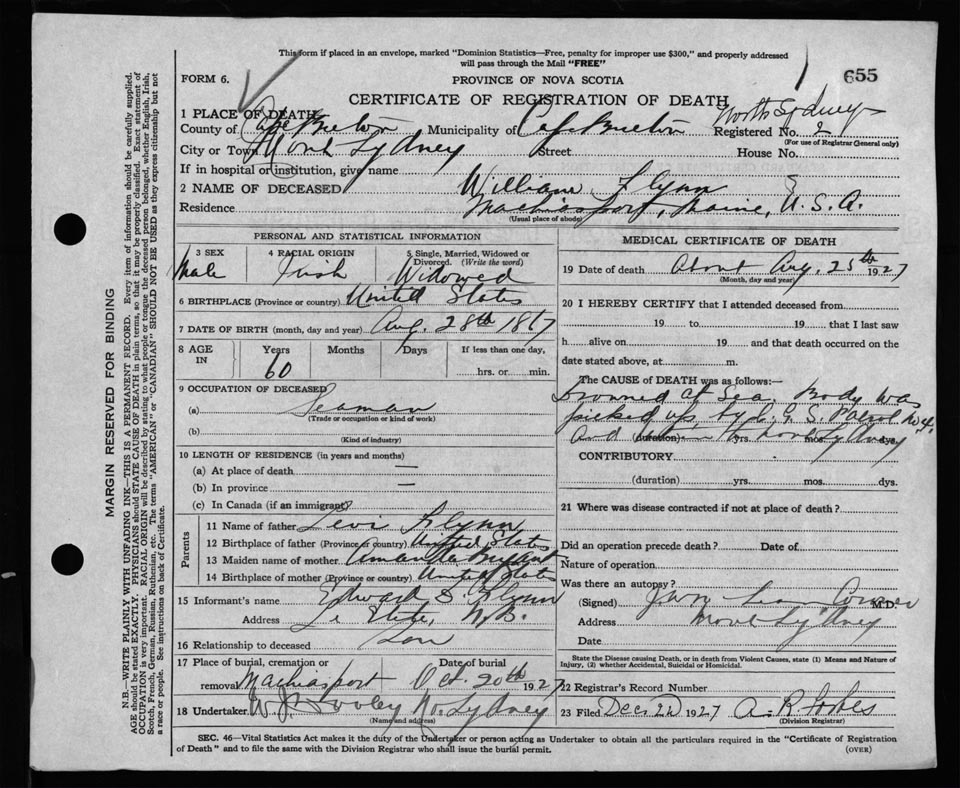 This form if placed in an envelope, marked "Dominion Statistics—Free, penalty for improper use $300," and properly addressed
will pass through the Mail "FREE"
655
FORM 6.
PROVINCE OF NOVA SCOTIA
CERTIFICATE OF REGISTRATION OF DEATH
North Sydney
1 PLACE OF DEATH
County of Cape Breton Municipality of Cape Breton Registered No. 2
(For use of Registrar General only)
City or Town North Sydney Street House No.
If in hospital or institution, give name
2 NAME OF DECEASED William Flynn
Residence Machiasport, Maine, U.S.A.
(Usual place of abode)
PERSONAL AND STATISTICAL INFORMATION
3 SEX 4 RACIAL ORIGIN 5 Single, Married, Widowed or Divorced. (Write the word)
Male Irish Widowed
6 BIRTHPLACE (Province or country) United States
7 DATE OF BIRTH (month, day and year) Aug. 28th 1867
8 AGE IN Years Months Days If less than one day,
60 hrs. or min.
9 OCCUPATION OF DECEASED
(a) Seaman
(Trade or occupation or kind of work)
(b)
(Kind of industry)
10 LENGTH OF RESIDENCE (in years and months)
(a) At place of death —
(b) In province —
(c) In Canada (if an immigrant)
Parents
11 Name of father Levi Flynn
12 Birthplace of father (Province or country) United States
13 Maiden name of mother
14 Birthplace of mother (Province or country) United States
15 Informant's name Edward S. Flynn
Address L'Etete, N.B.
16 Relationship to deceased Son
17 Place of burial, cremation or removal Machiasport Date of burial Oct. 20th 1927
18 Undertaker W. J. Dooley No. Sydney
(Name and address)
MEDICAL CERTIFICATE OF DEATH
19 Date of death About Aug. 25th 1927
(Month, day and year)
20 I HEREBY CERTIFY that I attended deceased from
19 to 19 that I last saw
h alive on 19 and that death occurred on the
date stated above, at m.
The CAUSE of DEATH was as follows:—
Drowned at Sea. Body was
picked up by C.G.S. Patrol No 4.
and North Sydney
(duration) yrs. mos. dys.
CONTRIBUTORY
(duration) yrs. mos. dys.
21 Where was disease contracted if not at place of death?
Did an operation precede death? Date of
Nature of operation
Was there an autopsy?
(Signed) Coroner M.D.
Address North Sydney
Date
State the Disease causing Death, or in death from Violent Causes, state (1) Means and Nature of
Injury, (2) whether Accidental, Suicidal or Homicidal.
22 Registrar's Record Number
23 Filed Dec 22 1927 A. R. Forbes
(Division Registrar)
SEC. 46—Vital Statistics Act makes it the duty of the Undertaker or person acting as Undertaker to obtain all the particulars required in the "Certificate of Registration
of Death" and to file the same with the Division Registrar who shall issue the burial permit.
(OVER)
MARGIN RESERVED FOR BINDING
N.B.—WRITE PLAINLY WITH UNFADING INK—THIS IS A PERMANENT RECORD. Every item of information should be carefully supplied.
AGE should be stated EXACTLY. PHYSICIANS should STATE CAUSE OF DEATH in plain terms, so that it may be properly classified. Exact statement of
OCCUPATION is very important. RACIAL ORIGIN will be described by stating to what people or tongue the deceased person belonged, whether English, Irish,
Scotch, French, German, Russian, Ruthenian, etc. The terms "AMERICAN" or "CANADIAN" SHOULD NOT BE USED as they express citizenship but not
a race or people. See instructions on back of Certificate.